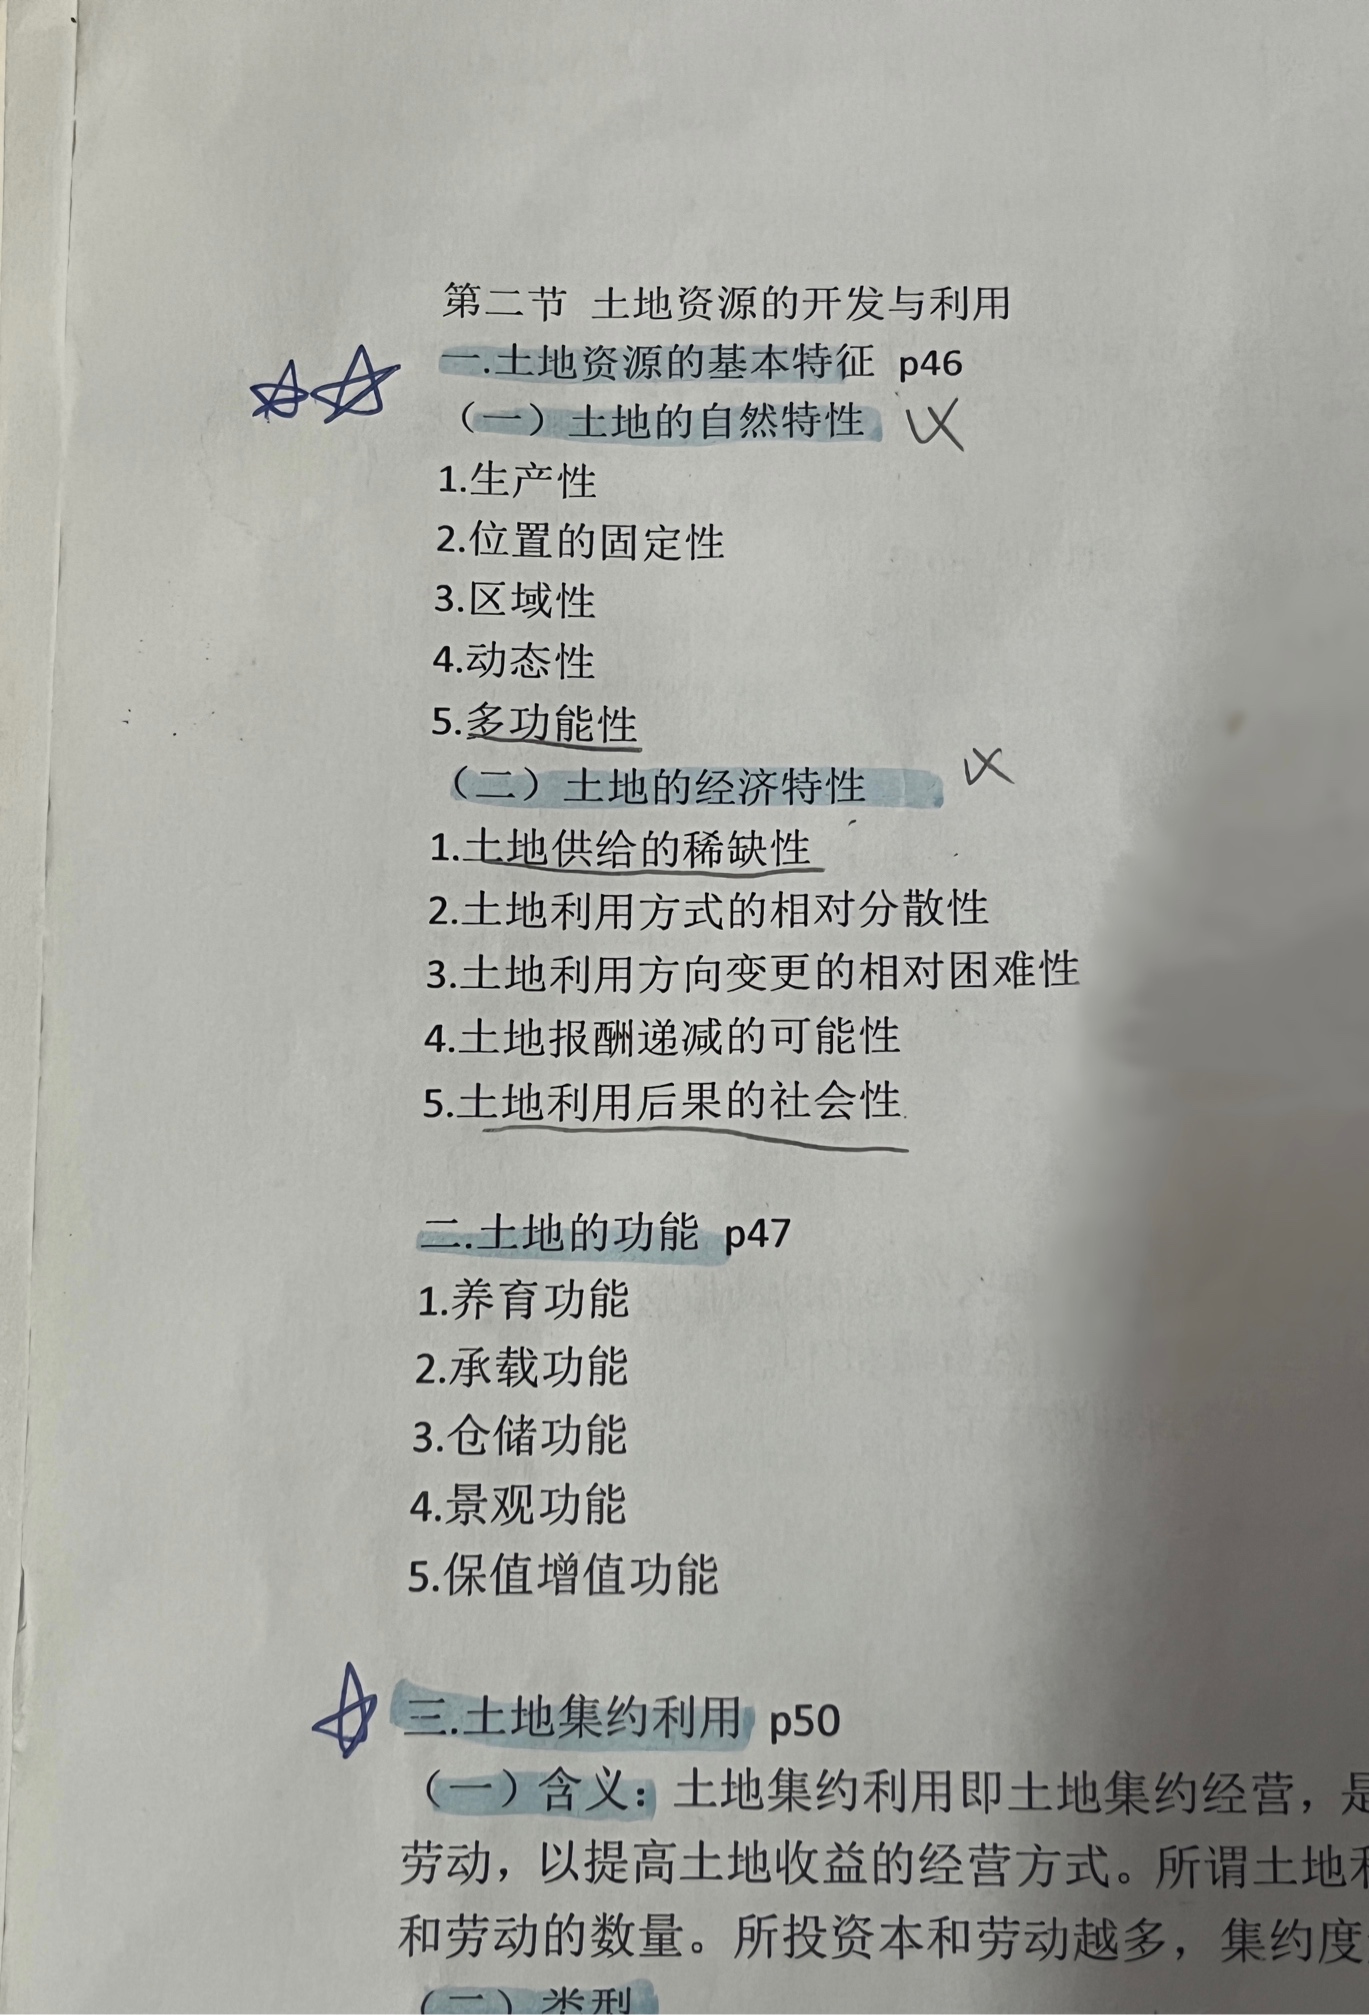 第二节 土地资源的开发与利用
一.土地资源的基本特征 p46
（一）土地的自然特性
1.生产性
2.位置的固定性
3.区域性
4.动态性
5.多功能性
（二）土地的经济特性
1.土地供给的稀缺性
2.土地利用方式的相对分散性
3.土地利用方向变更的相对困难性
4.土地报酬递减的可能性
5.土地利用后果的社会性
二.土地的功能 p47
1.养育功能
2.承载功能
3.仓储功能
4.景观功能
5.保值增值功能
三.土地集约利用 p50
（一）含义：土地集约利用即土地集约经营，是
劳动，以提高土地收益的经营方式。所谓土地利
和劳动的数量。所投资本和劳动越多，集约度
（二）类型